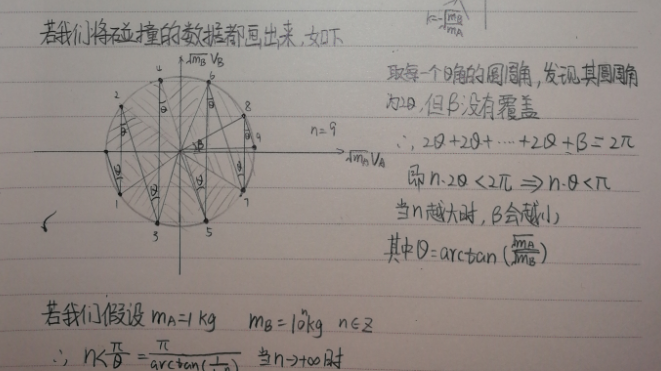 k=-√mB/√mA
若我们将碰撞的数据都画出来,如下
√mB VB
4
6
2
θ
θ
θ
8
n=9
θ
9
β
√mB VA
θ
θ
θ
θ
1
3
5
7
取察一个θ角的圆周角,发现其圆周角
为2θ,但β没有覆盖
∴ 2θ+2θ+…+2θ+β=2π
即 n·2θ<2π ⇒ n·θ<π
当n越大时,β会越小
其中θ=arctan(√mA/√mB)
若我们假设 mA=1kg mB=10ⁿkg n∈Z
∴ n<π/θ=π/arctan( 当n→+∞时